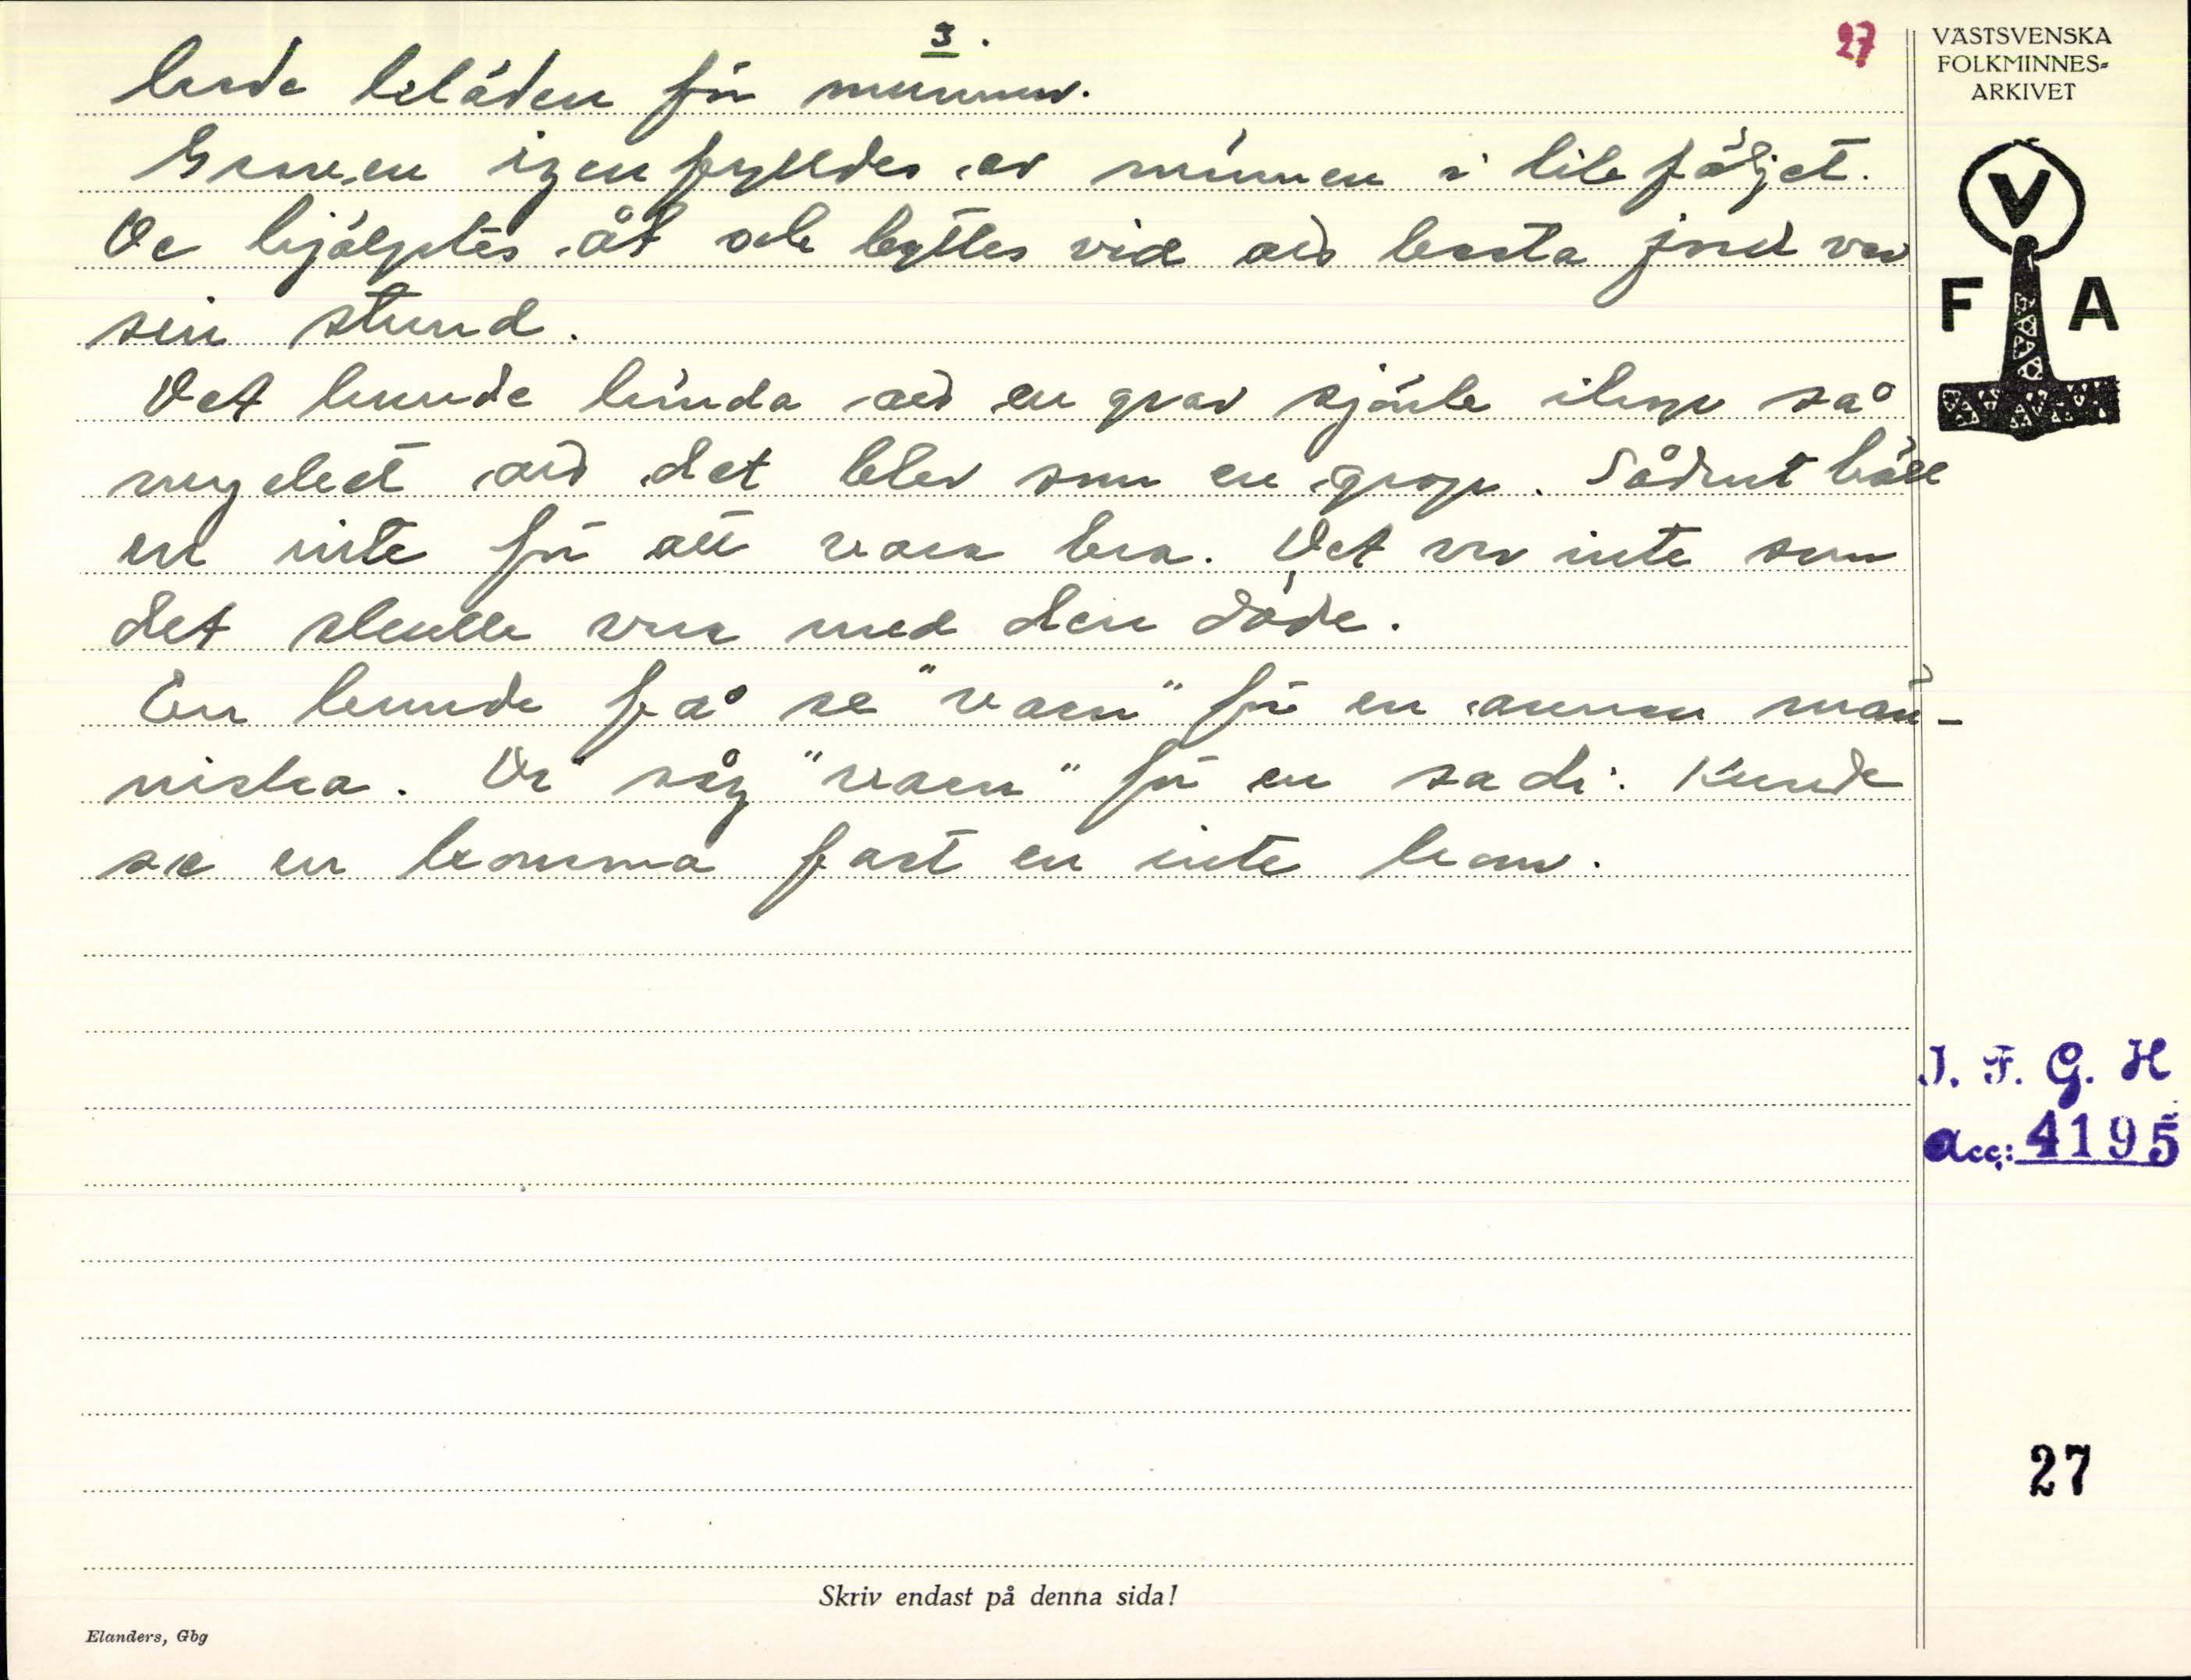 3.
27
hade kläden för munnen.
Graven igenfylldes av männen i likföljet.
De hjälptes åt och byttes vid att kasta jord var
sin stund.
Det kunde hända att en grav sjönk ihop så
mycket att det blev som en grop. Sådant höll
en inte för att vara bra. Det var inte som
det skulle vara med den döde.
En kunde få se "varn" för en annan män-
niska. De såg "varn" för en sa di. Kunde
se en komma fast en inte kom.
VÄSTSVENSKA
FOLKMINNES-
ARKIVET
V
F A
I. F. G. H
Acc: 4195
27
Skriv endast på denna sida!
Elanders, Gbg